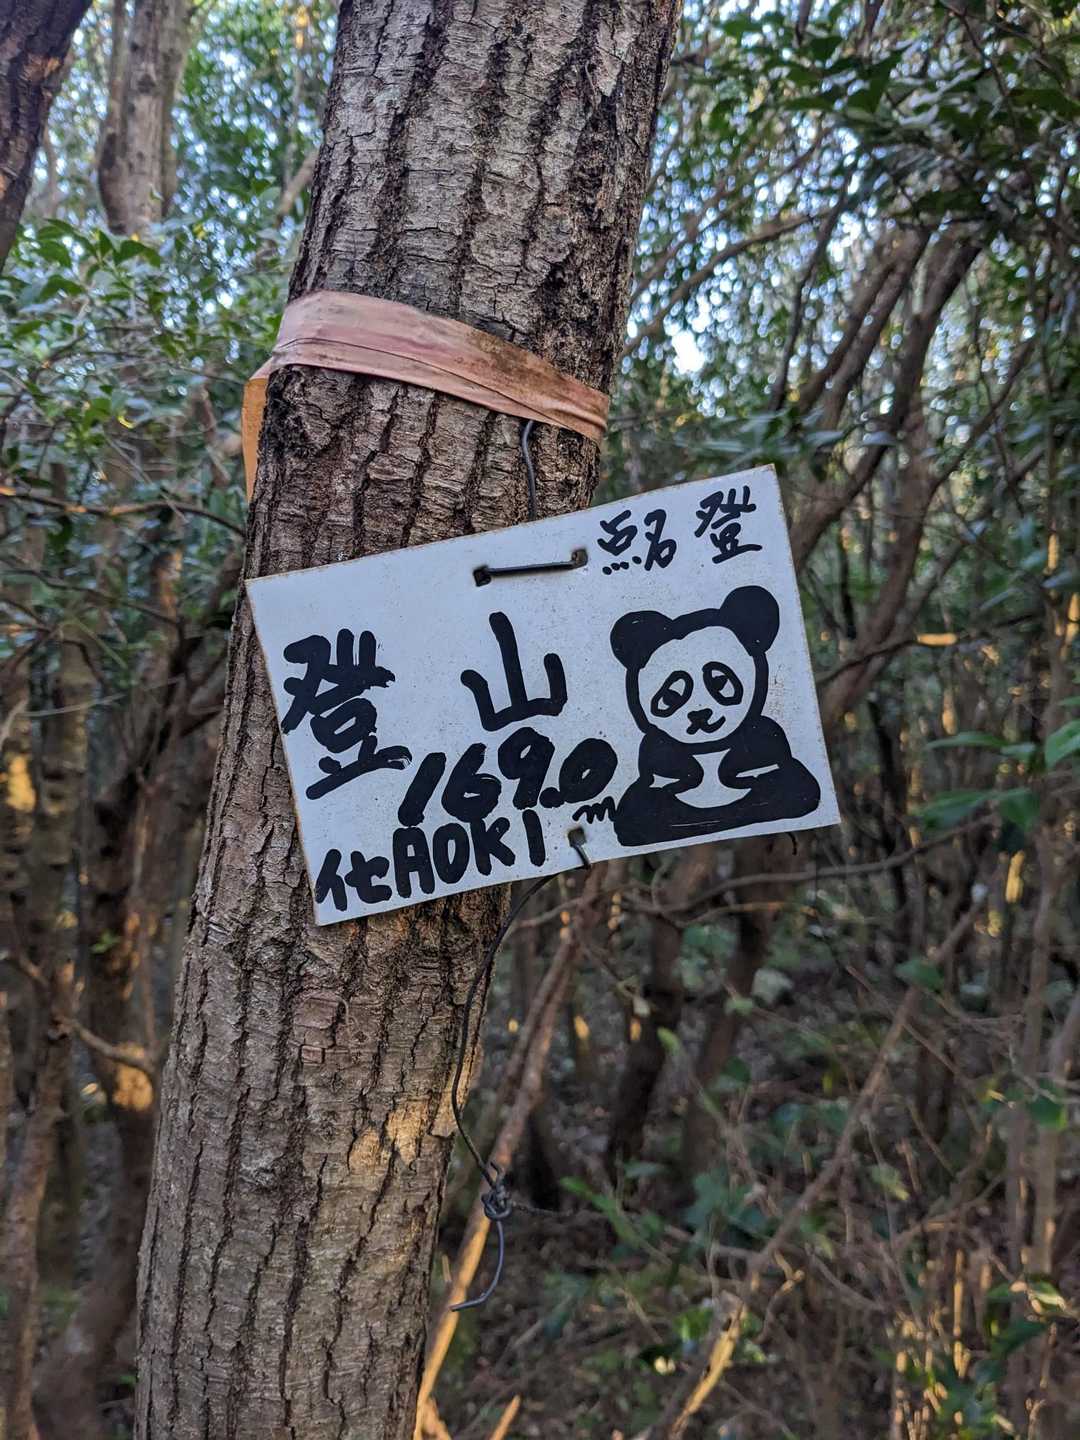 点名 登
登 山
169.0m
化AOKI